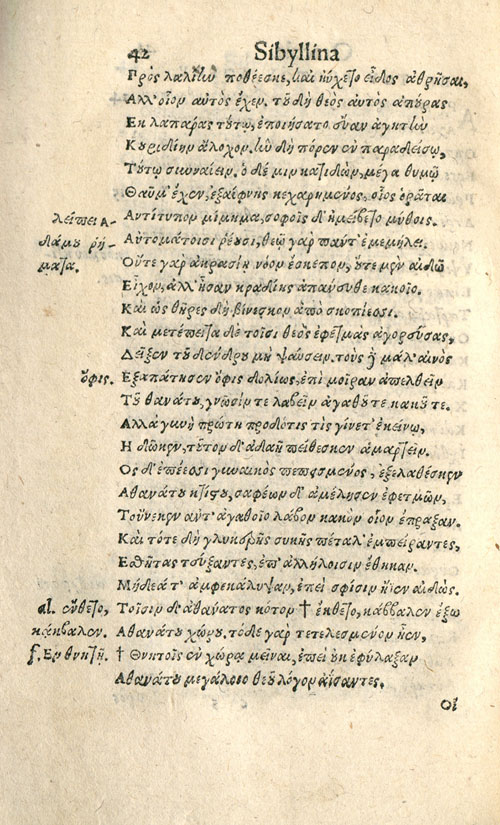 42 Sibyllina
Πρὸς λαλιὴν ποθέεσκε, καὶ ηὔχετο εἶδος ἀθρῆσαι,
Ἀλλ' οἷον αὐτὸς ἔχεν. τοῦ δὴ θεὸς αὐτὸς ἀπούρας
Ἐκ λαπάρας ὀστοῦν, ἐποιήσατο εὖαν ἀγητὴν
Κουριδίην ἄλοχον, ἣν δὴ πόρεν ἐν παραδείσῳ,
Τούτῳ συνναίειν. ὁ δέ μιν κατιδὼν, μέγα θυμῷ
Θαῦμ' ἔχεν, ἐξαίφνης κεχαρημένος, οἷος ὁρᾶται
λείπει Ἀ- Ἀντίτυπον μίμημα, σοφοῖς δ' ἠμείβετο μύθοις.
δάμου ῥή- Αὐτομάτοισι ῥέουσι, θεῷ γὰρ πάντ' ἐμεμήλει.
ματα. Οὔτε γὰρ ἀκρασίῃ νόον ἔσκεπον, οὔτε μὲν αἰδῶ
Εἶχον, ἀλλ' ἦσαν κραδίης ἀπάνευθε κακοῖο.
Καὶ ὡς θῆρες δὴ βίνεσκον ἀπὸ σκοπέεσσι.
Καὶ μετέπειτα δὲ τοῖσι θεὸς ἐφετμὰς ἀγορεύσας,
Δεῖξεν τοῦ δένδρου μὴ ψαύσειν. τοὺς δὲ μάλ' αἰνὸς
ὄφις. Ἐξαπάτησεν ὄφις δολίως, ἐπὶ μοῖραν ἀπελθεῖν
Τοῦ θανάτου, γνῶσίν τε λαβεῖν ἀγαθοῦ τε κακοῦ τε.
Ἀλλὰ γυνὴ πρώτη προδότις τὶς γίνετ' ἐκείνῳ,
Ἣ δῶκεν, τοῦτον δ' ἀδαῆ πείθεσκεν ἁμαρτεῖν.
Ὃς δ' ἐπέεσσι γυναικὸς πεπεισμένος, ἐξελαθέσκεν
Ἀθανάτου κτίστου, σαφέων δ' ἀμέλησεν ἐφετμῶν,
Τοὔνεκεν αὔτ' ἀγαθοῖο λάβον κακὸν οἷον ἔπραξαν.
Καὶ τότε δὴ γλυκερῆς συκῆς πέταλ' ἐμπείραντες,
Ἐσθῆτας τεύξαντες, ἐπ' ἀλλήλοισιν ἔθηκαν.
Μήδεά τ' ἀμφεκάλυψαν, ἐπεὶ σφίσιν ἧεν αἰδώς.
al. ἔνθετο, Τοῖσιν δ' ἀθάνατος κότον † ἔκθετο, κάββαλεν ἔξω
κάκβαλεν. Ἀθανάτου χώρου, τόδε γὰρ τετελεσμένον ἦεν,
f. † Θνητοῖς ἐν χώρᾳ μεῖναι, ἐπεὶ οὐκ ἐφύλαξαν
Ἀθανάτου μεγάλοιο θεοῦ λόγον ἀΐσαντες.
οἱ